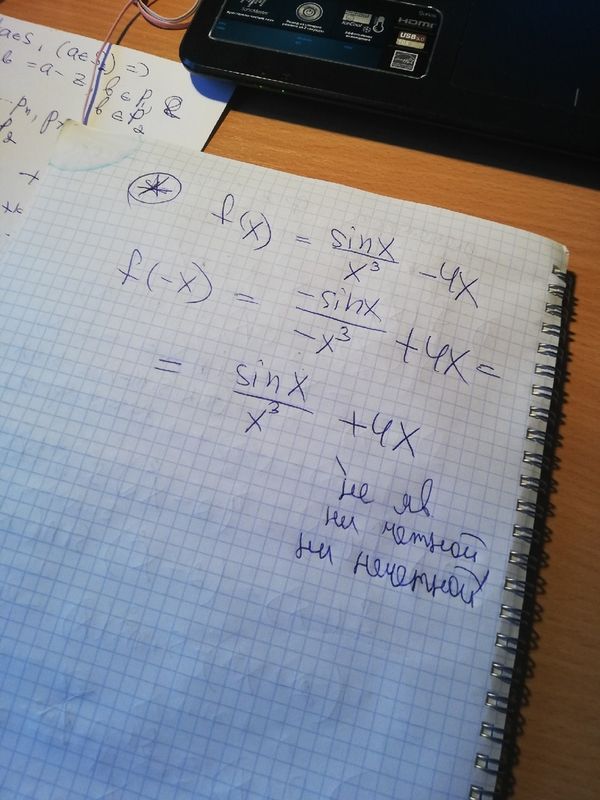 HDMI
USB 3.0
a∈S, (a∈S₂) =>
b = a - z, b ∈ p,
b ∈ p₂
f(x) = sinx/x³ - 4x
f(-x) = -sinx/-x³ + 4x =
= sinx/x³ + 4x
не яв
ни четной
ни нечетной